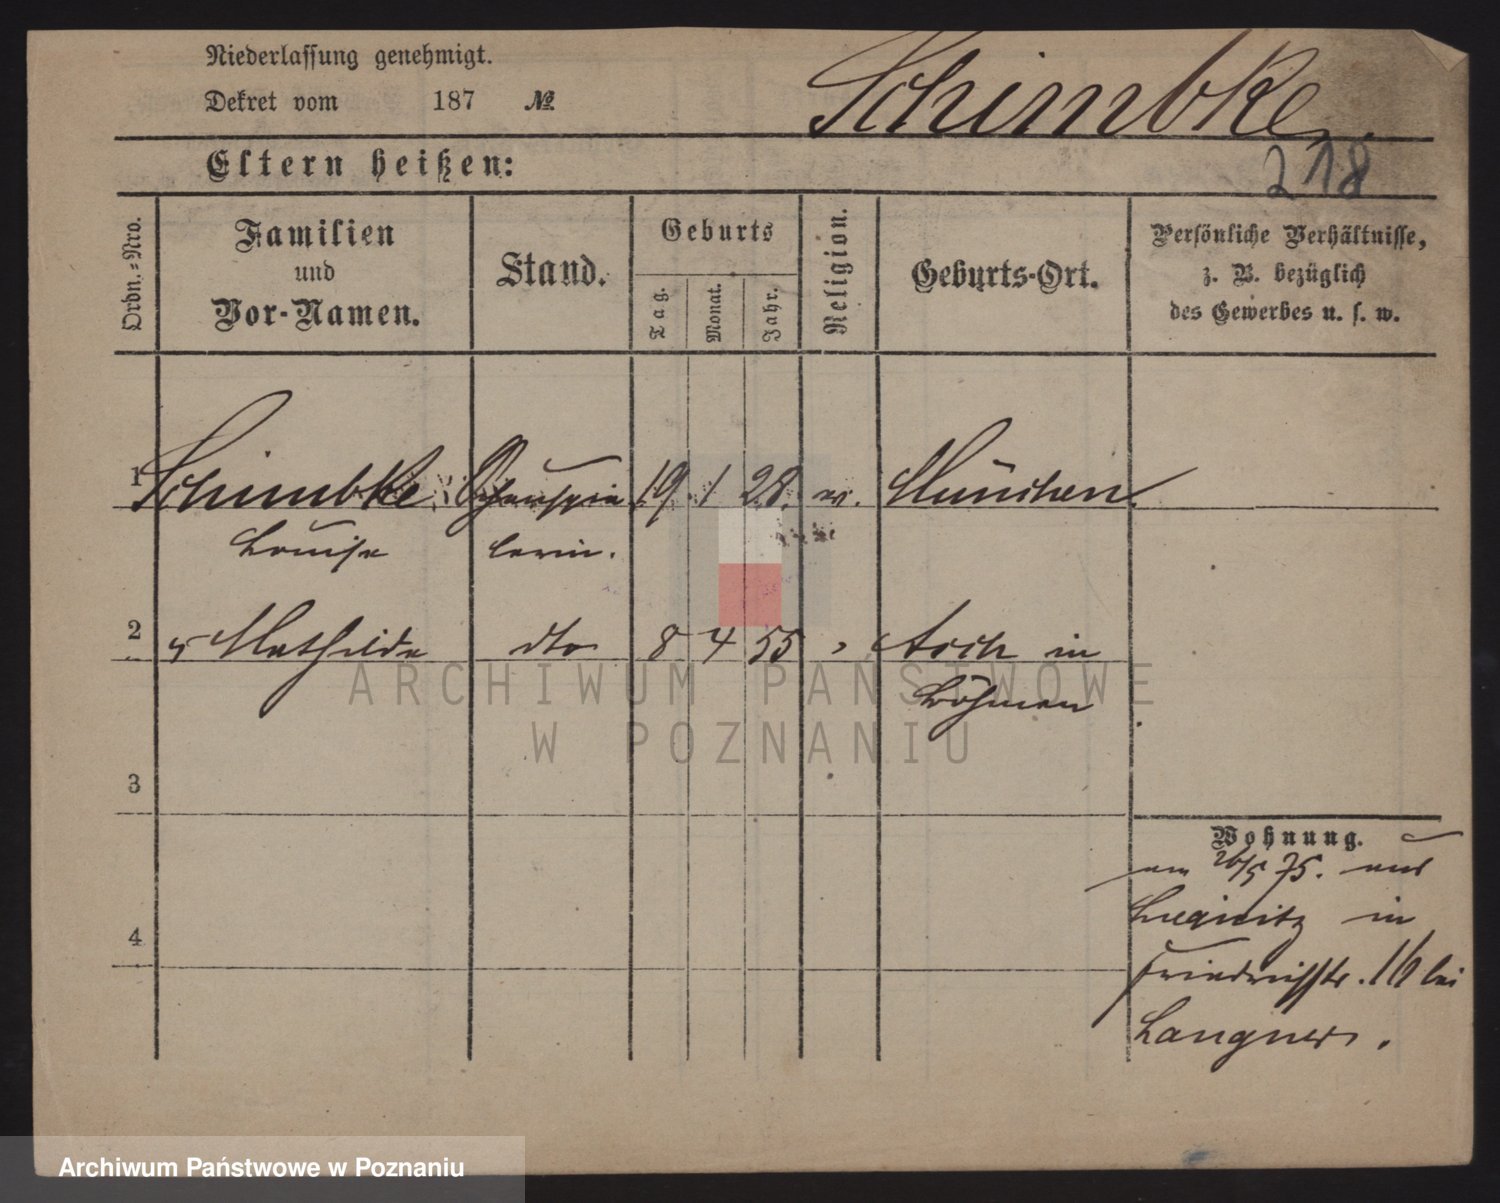 Niederlassung genehmigt.
Dekret vom 187 №
Schimbke.
Eltern heißen:
218
Ordn.-Nro.
Familien
und
Vor-Namen.
Stand.
Geburts
Tag.
Monat.
Jahr.
Religion.
Geburts-Ort.
Persönliche Verhältnisse,
z. B. bezüglich
des Gewerbes u. s. w.
1 Schimbke Schauspie 19. 1 28. ev. München
Louise lerin.
2 " Mathilde dto 8 4 55 " Asch in
Böhmen
3
Wohnung.
am 26/5 75. aus
Liegnitz in
4
Friedrichstr. 16 bei
Langner.
ARCHIWUM PAŃSTWOWE
W POZNANIU
Archiwum Państwowe w Poznaniu